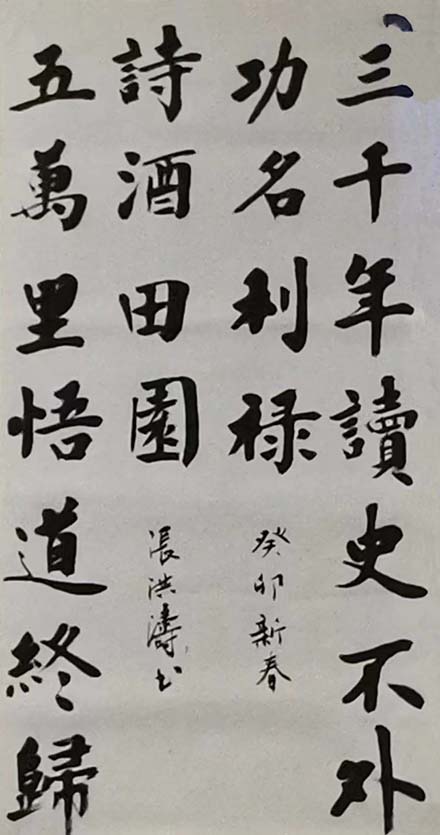 三千年讀史不外
功名利禄
五萬里悟道終歸
詩酒田園
癸卯新春
張洪濤书